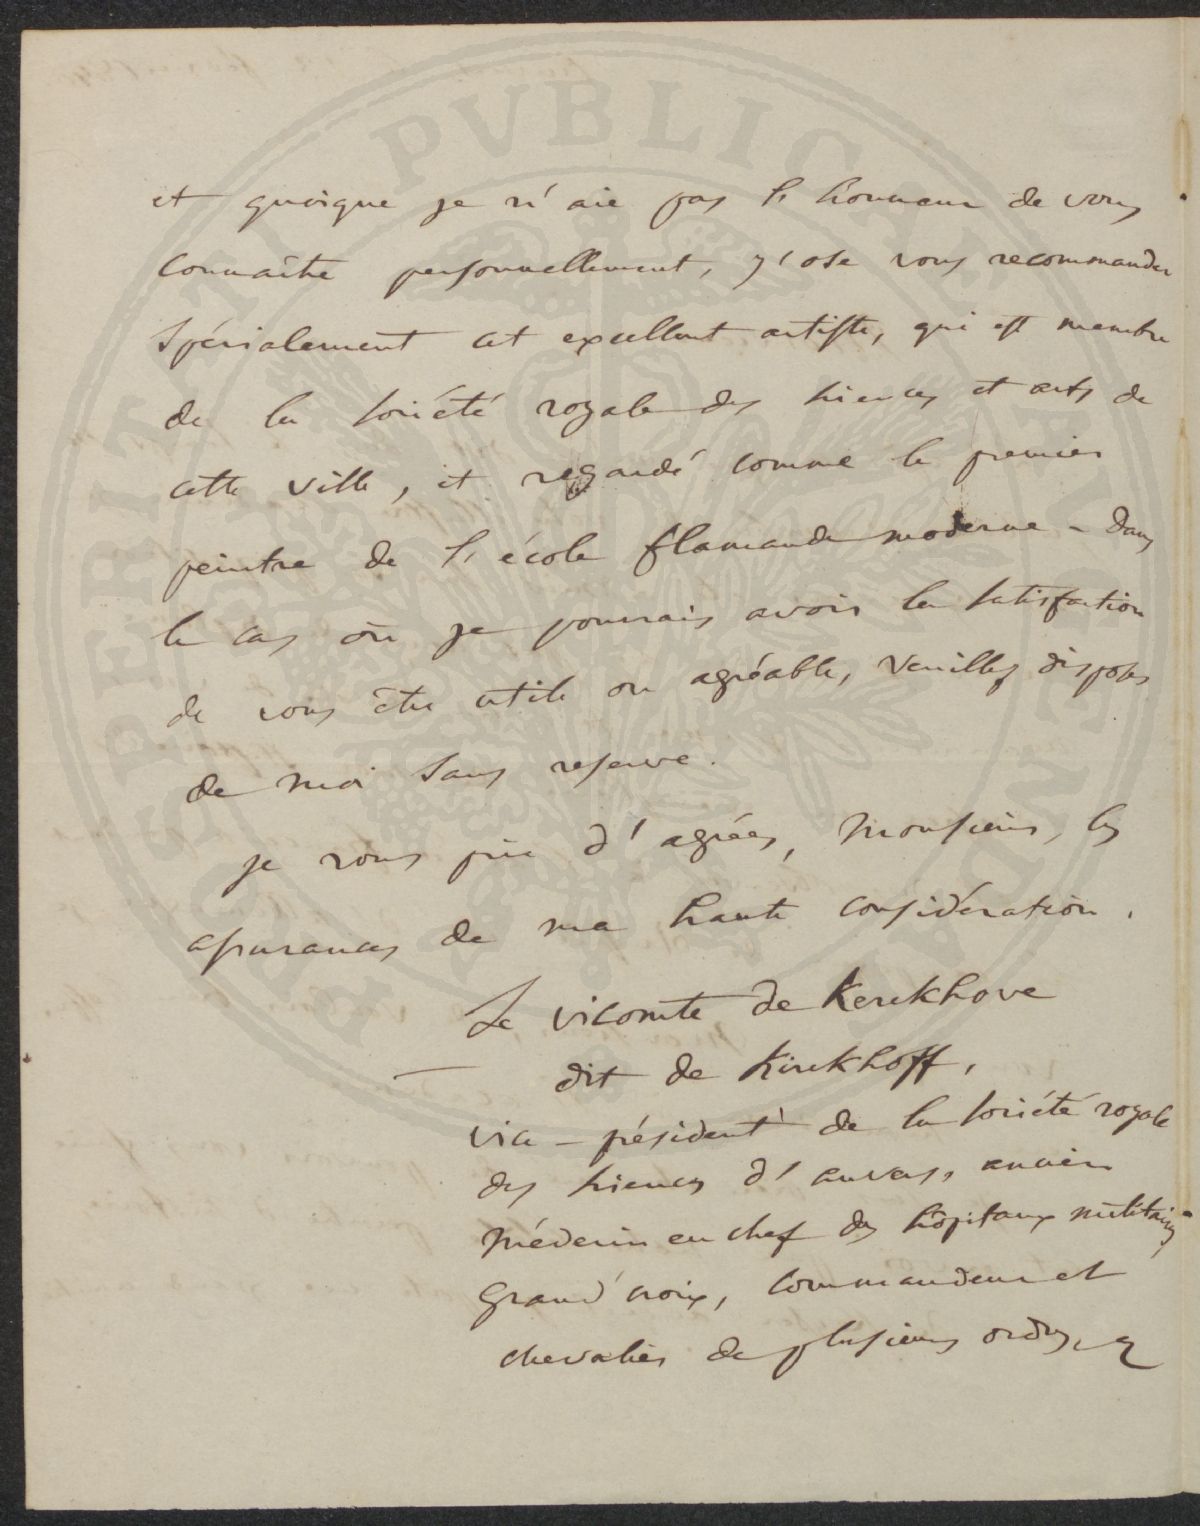 et quoique je n'aie pas l'honneur de vous
connaître personnellement, j'ose vous recommander
spécialement cet excellent artiste, qui est membre
de la société royale des sciences et arts de
cette ville, et regardé comme le premier
peintre de l'école flamande moderne - Dans
le cas où je pourrais avoir la satisfaction
de vous être utile ou agréable, veuillez disposer
de moi sans reserve.
je vous prie d'agréer, Monsieur, les
assurances de ma haute considération.
Le vicomte de Kerckhove
dit de Kirckhoff,
vice-président de la société royale
des sciences d'anvers, ancien
Médecin en chef des hôpitaux militaires,
Grand'croix, commandeur et
chevalier de plusieurs ordres,